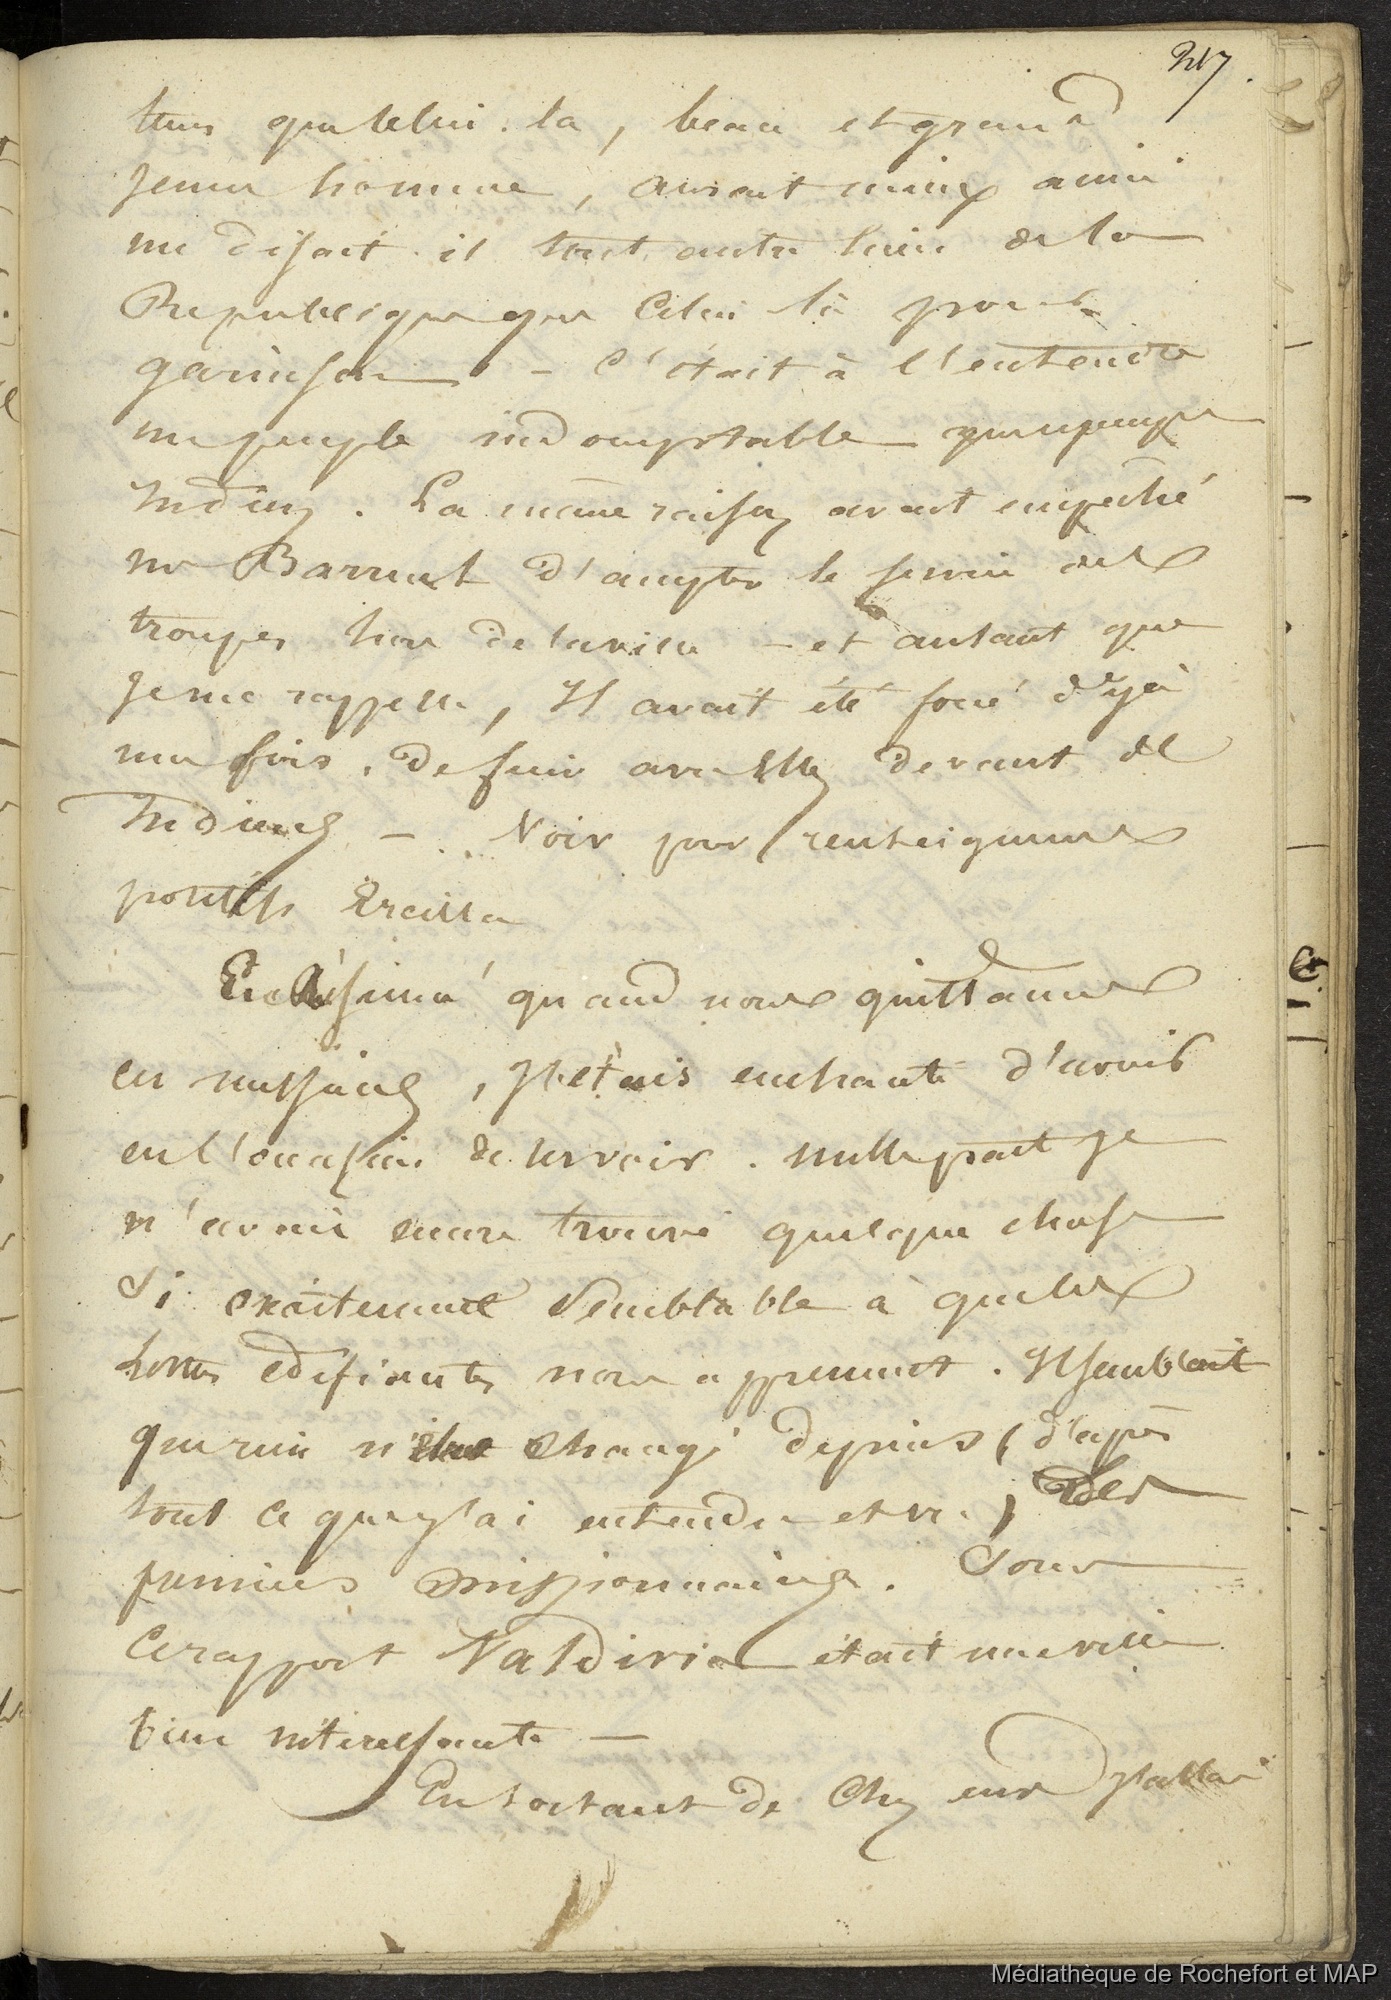 217
tems que celui-là, beau et grand
jeune homme, aurait mieux aimé
me disait-il tout autre lieu de la
Republique que celui là pour
garnison - C'était à l'entendre
un peuple indomptable que ce peuple
Indien. La même raison avait empeché
mr Barruel d'accepter le service des
troupes hors de la ville - et autant que
je me rappelle, Il avait été forcé déjà
une fois, de fuir avec elles devant des
Indiens - Voir pour renseignemens
positifs Ercilla
En résumé quand nous quittâmes
ces missions, J'étais enchanté d'avoir
eu l'occasion de les voir. nulle part je
n'avais encore trouvé quelque chose
si exactement semblable à ce que les
lettres edifiantes nous apprennent. Il semblait
que rien n'eut changé depuis (d'après
tout ce que j'ai entendu et vu) des
premiers missionnaires. Sous
ce rapport Valdivia était une ville
bien interessante -
En sortant de chez eux j'allai
Médiathèque de Rochefort et MAP